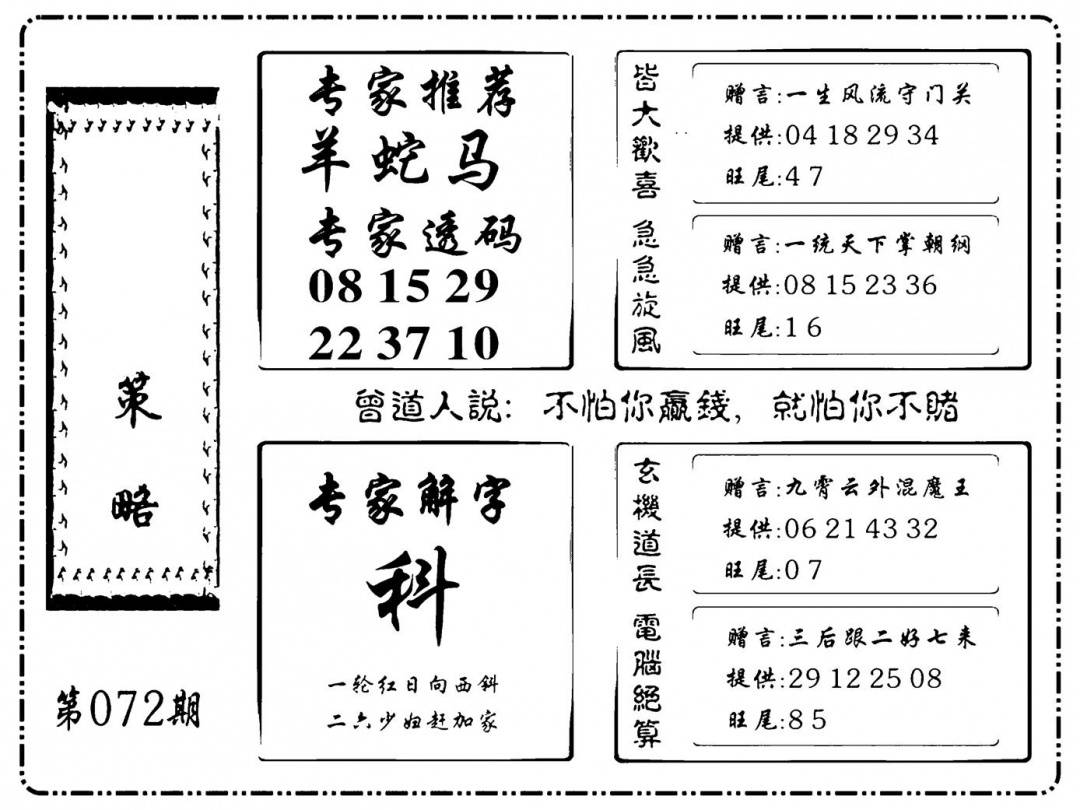 策略
第072期
专家推荐
羊蛇马
专家透码
08 15 29
22 37 10
皆大歡喜
赠言:一生风流守门关
提供:04 18 29 34
旺尾:4 7
急急旋風
赠言:一统天下掌朝纲
提供:08 15 23 36
旺尾:1 6
曾道人説: 不怕你贏錢, 就怕你不賭
专家解字
科
一轮红日向西斜
二六少妞赶加家
玄機道長
赠言:九霄云外混魔王
提供:06 21 43 32
旺尾:0 7
電腦絕算
赠言:三后跟二好七来
提供:29 12 25 08
旺尾:8 5